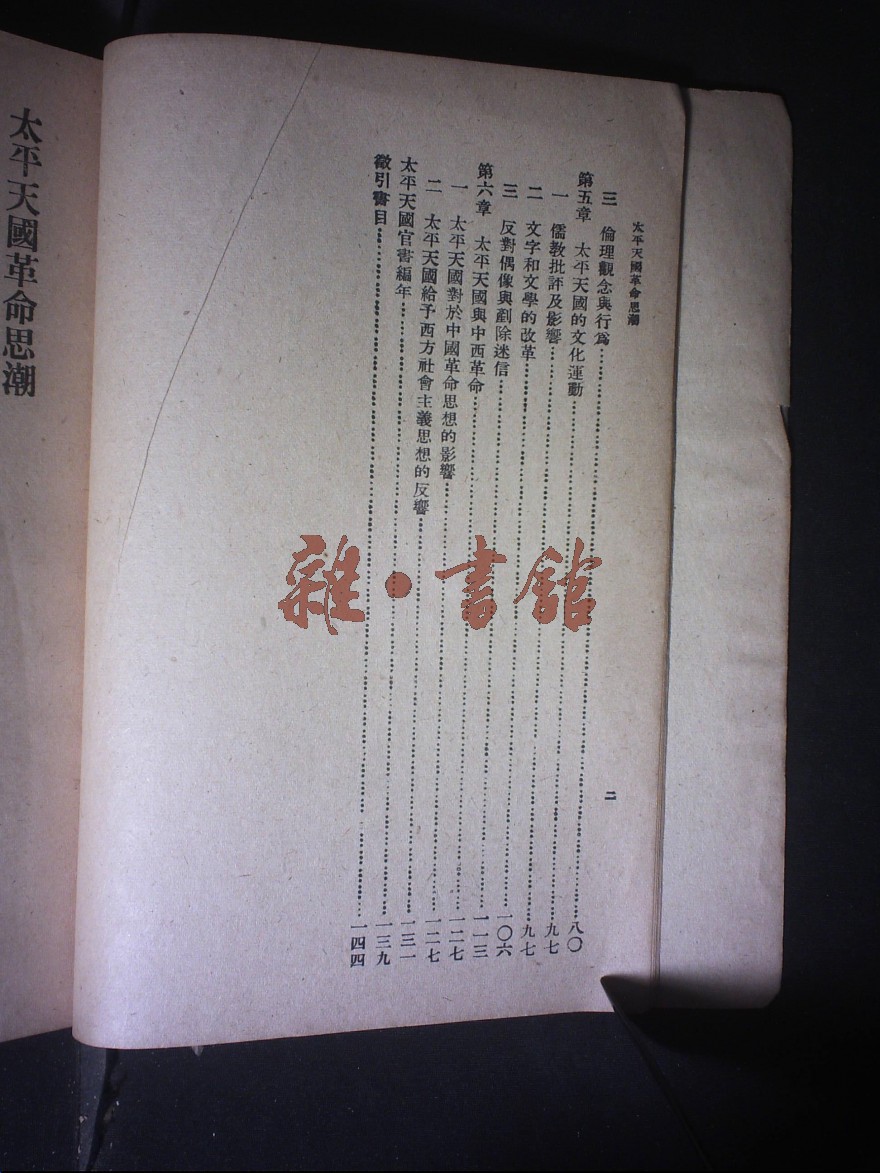 太平天國革命思潮
二
三 倫理觀念與行爲……八〇
第五章 太平天國的文化運動……九七
一 儒教批評及影響……九七
二 文字和文學的改革……一〇六
三 反對偶像與剷除迷信……一一三
第六章 太平天國與中西革命……一二七
一 太平天國對於中國革命思想的影響……一二七
二 太平天國給予西方社會主義思想的反響……一三一
太平天國官書編年……一三九
徵引書目……一四四
太平天國革命思潮
雜·書館